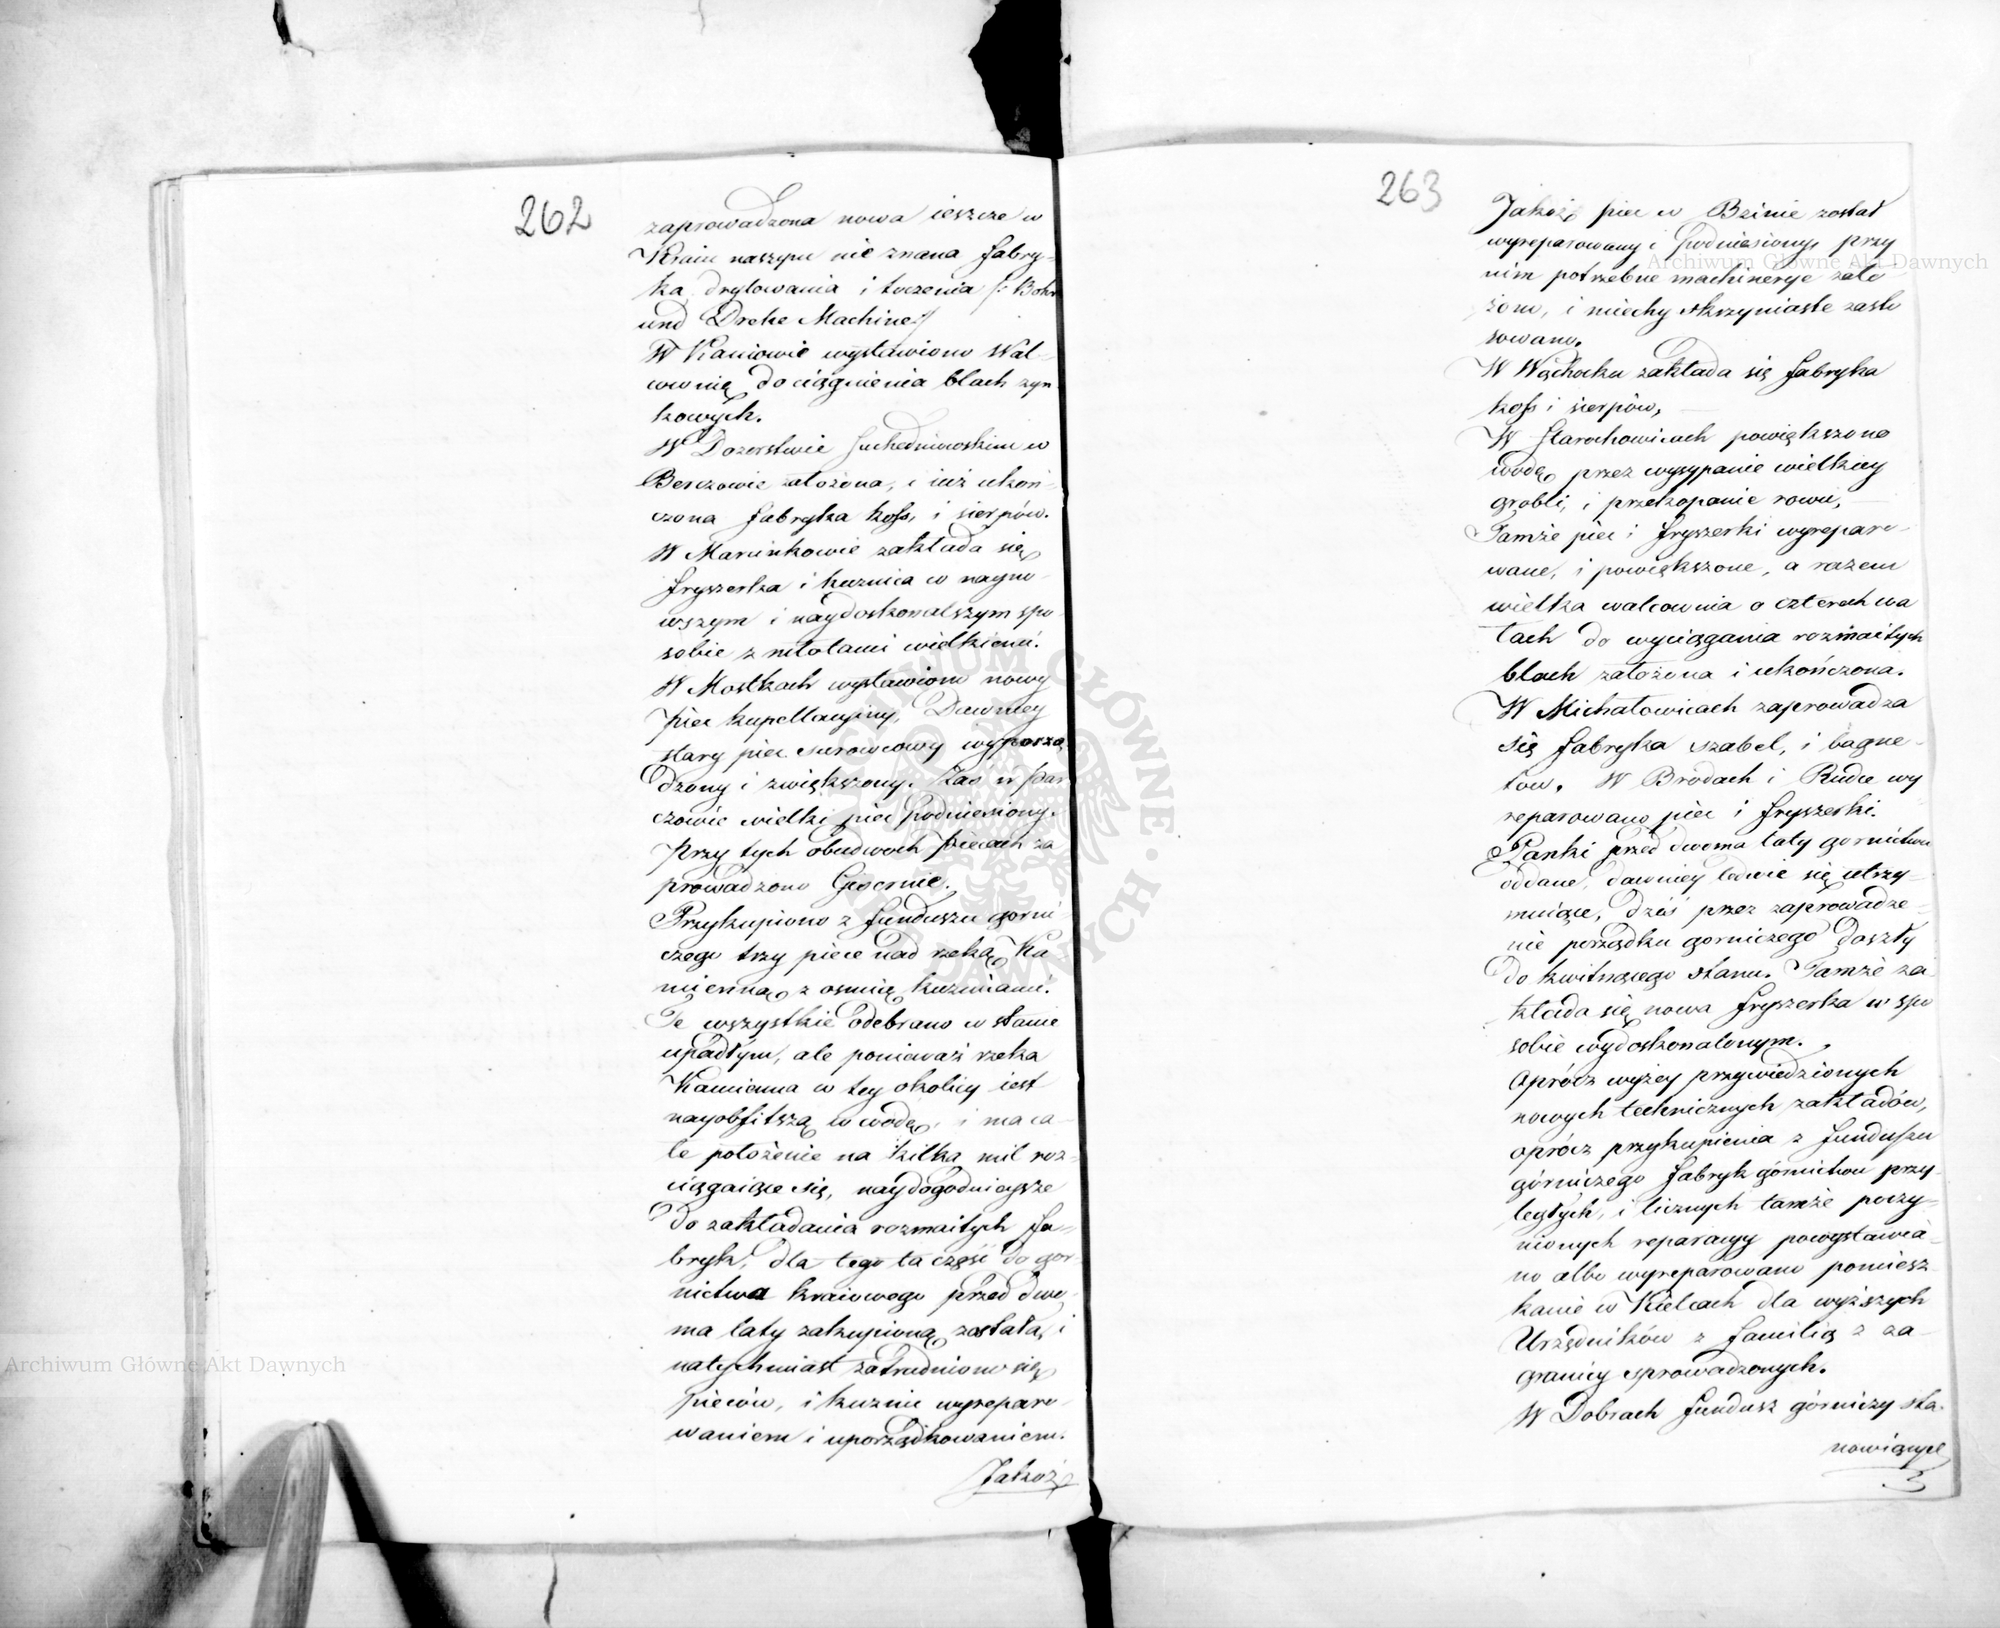 262
zaprowadzona nowa ieszcze w
Kraiu naszym nie znana fabry-
ka drylowania i toczenia /: Bohr
und Drehe Machine :/
W Kaniowie wystawiono Wal-
cownią do ciągnienia blach zyn-
kowych.
W Dozorstwie Suchedniowskim w
Berezowie założona, i iuż ukoń-
czona fabryka koss, i sierpów.
W Marcinkowie zakłada się
fryszerka i kuznica w nayno-
wszym i naydoskonalszym spo-
sobie z młotami wielkiemi.
W Mostkach wystawiono nowy
piec kupellacyiny, Dawniey
stary piec surowcowy wyporzą
dzony i zwiększony. Zaś w Par
czowie wielki piec podniesiony.
przy tych obudwoch piecach za
prowadzono Giesernie.
Przykupiono z funduszu gorni-
czego trzy piece nad rzeką Ka-
mienną z osmią kuzniami.
Te wszystkie odebrano w stanie
upadłym, ale ponieważ rzeka
Kamienna w tey okolicy iest
nayobfitszą w wodę, i ma ca-
łe położenie na kilka mil roz-
ciągaiące się, naydogodnieysze
do zakładania rozmaitych fa-
bryk, dla tego ta część do gor-
nictwa kraiowego przed dwo-
ma laty zakupioną została, i
natychmiast zatrudniono się
pieców, i kuznic wyreparo-
waniem i uporządkowaniem.
Jakoż
263
Jakoż piec w Bzinie został
wyreparowany i podniesiony, przy
nim potrzebne machinerye zało
żono, i miechy skrzyniaste zasto
sowano.
W Wąchocku zakłada się fabryka
koss i sierpów,
W Starochowicach powiększono
wodę przez wysypanie wielkiey
grobli, i przekopanie rowu,
Tamże piec i fryszerki wyreparo-
wane, i powiększone, a razem
wielka walcownia o czterech wa
łach do wyciągania rozmaitych
blach założona i ukończona.
W Michałowicach zaprowadza
się fabryka szabel, i bagne-
tow. W Brodach i Rudce wy
reparowano piec i fryszerki.
Panki przed dwoma laty gornictwu
oddane, dawniey ledwie się utrzy-
muiące, dziś przez zaprowadze-
nie porządku gorniczego doszły
do kwitnącego stanu. Tamże za
kłada się nowa fryszerka w spo
sobie wydoskonalonym.
Oprócz wyżey przywiedzionych
nowych technicznych zakładów,
oprócz przykupienia z funduszu
górniczego fabryk górnictwu przy-
ległych, i licznych tamże poczy-
nionych reparacyy powystawia-
no albo wyreparowano pomiesz-
kanie w Kielcach dla wyższych
Urzędników z familią z za-
granicy sprowadzonych.
W Dobrach fundusz górniczy sta-
nowiących